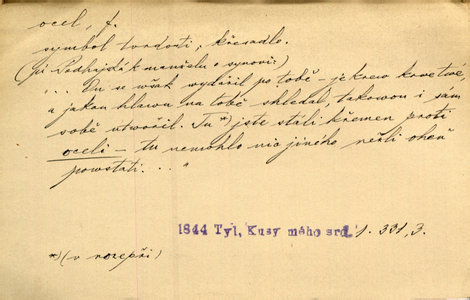 ocel, f.
symbol tvrdosti, křesadlo.
(pí Podhajská k manželu o synovi:)
"... On se však vydařil po tobě – je krew krwe twé,
a jakou hlawu na tobě shledal, takowou i sám
sobě utwořil. Tu *) jste stáli křemen proti
oceli – tu nemohlo nic jiného nežli oheň
powstati. ..."
1844 Tyl, Kusy mého srd. 1. 331, 3.
*) (v rozepři)